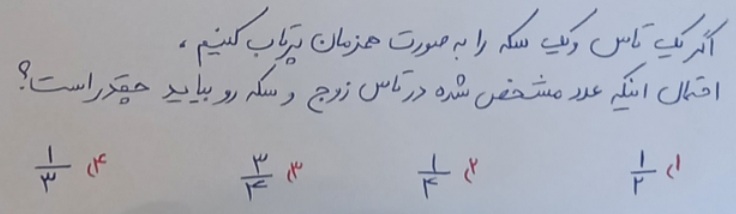 اگر یک تاس و یک سکه را به صورت همزمان پرتاب کنیم ،
احتمال اینکه عدد مشخص شده در تاس زوج و سکه رو بیاید چقدر است؟
۱) ۱/۲ ۲) ۱/۴ ۳) ۳/۴ ۴) ۱/۳